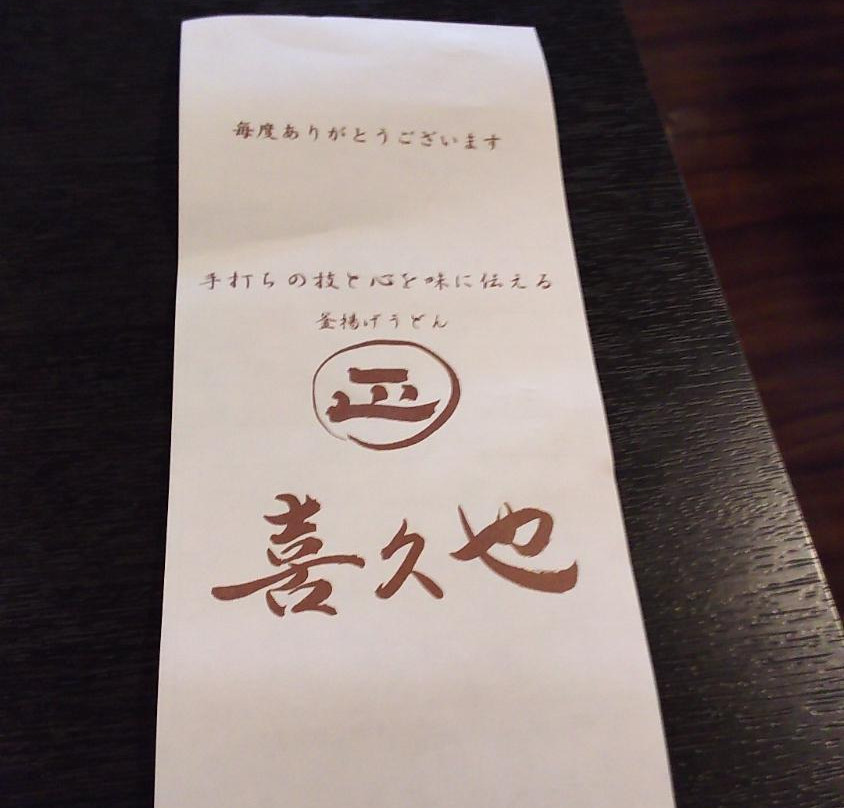 毎度ありがとうございます
手打ちの技と心を味に伝える
釜揚げうどん
正
喜久也